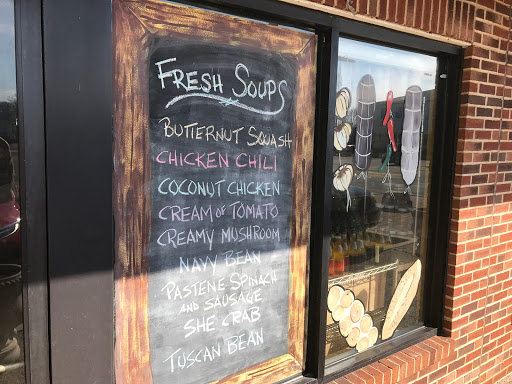 FRESH SOUPS
BUTTERNUT SQUASH
CHICKEN CHILI
COCONUT CHICKEN
CREAM OF TOMATO
CREAMY MUSHROOM
NAVY BEAN
PASTENE SPINACH
AND SAUSAGE
SHE CRAB
TUSCAN BEAN